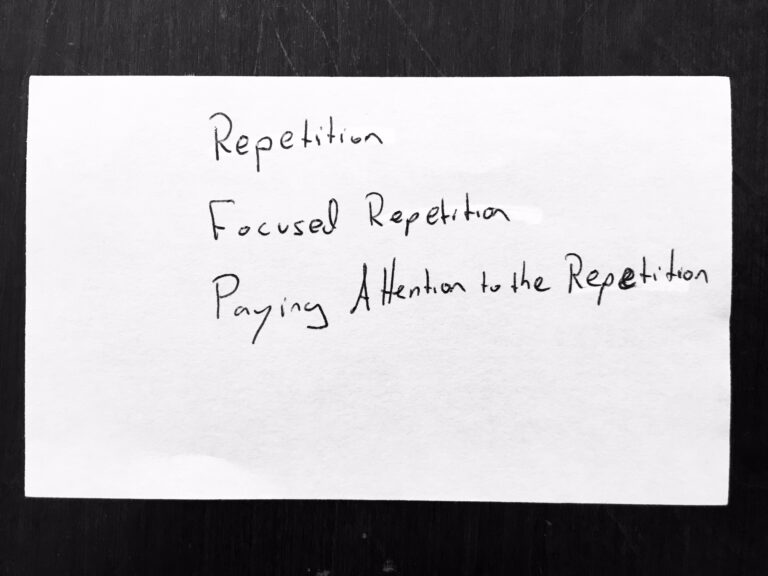 Repetition
Focused Repetition
Paying Attention to the Repetition